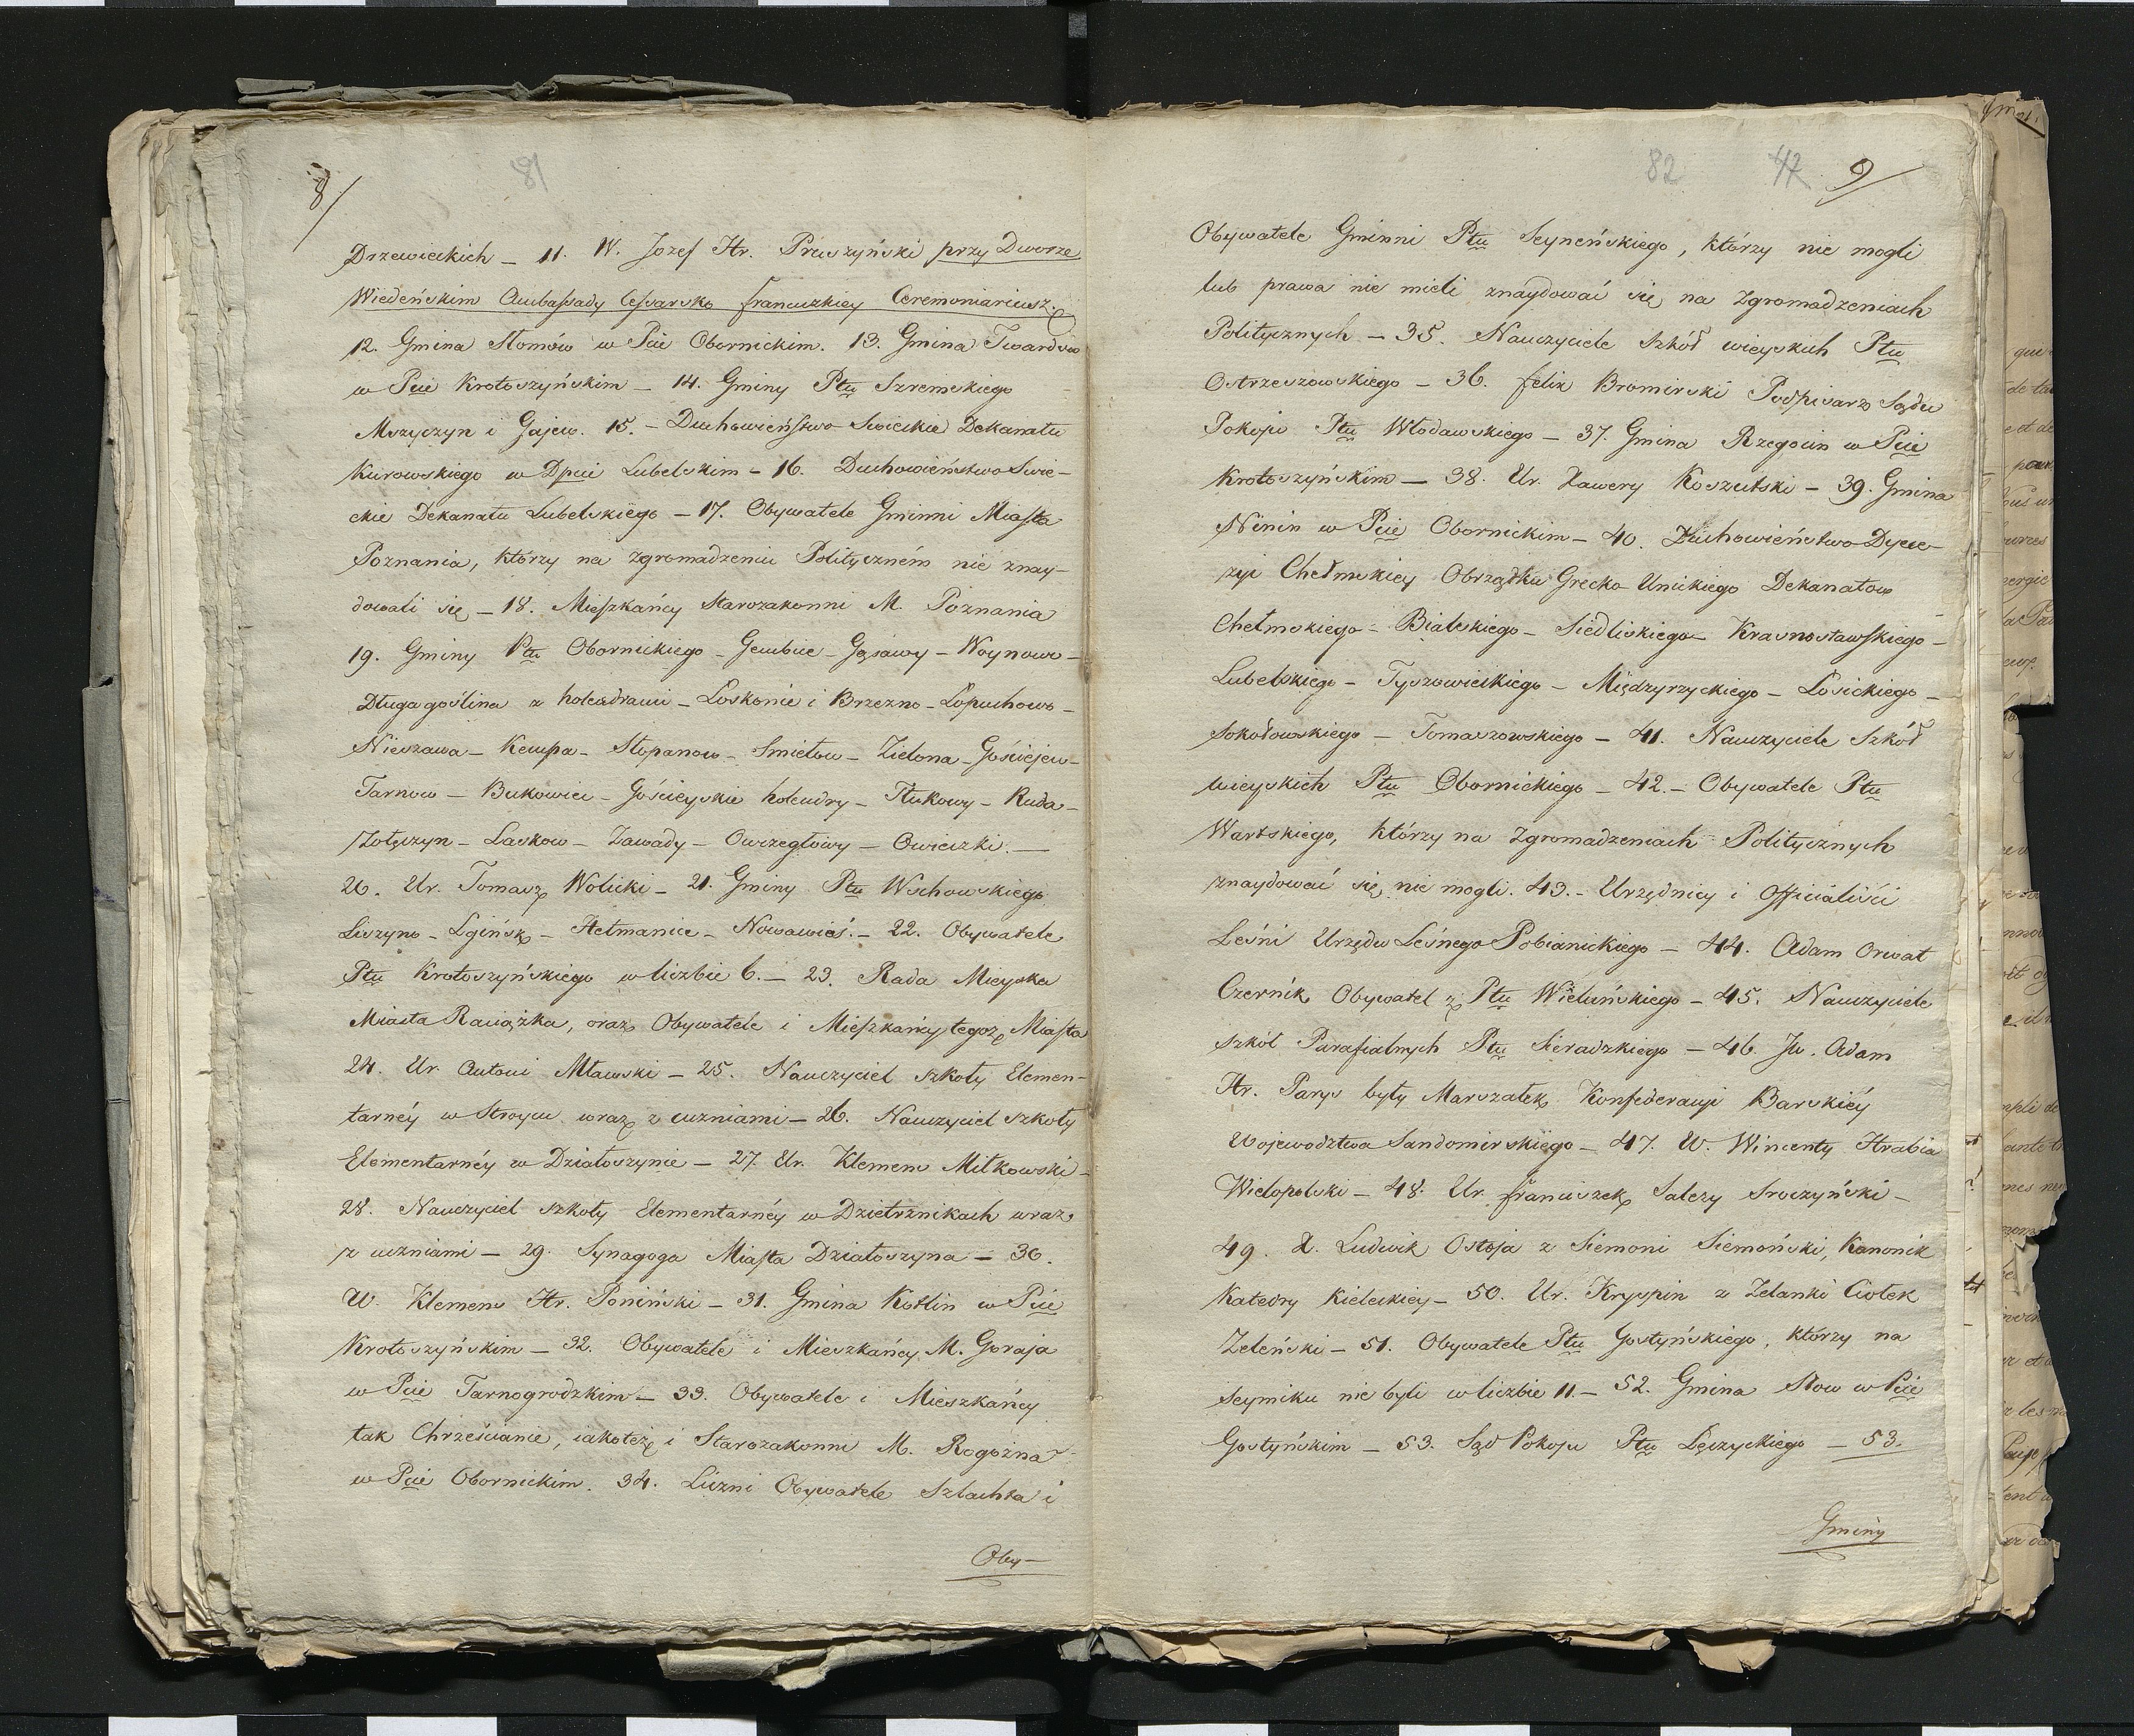 8/
81
Drzewieckich – 11. W. Jozef Hr. Pruszyński przy Dworze
Wiedeńskim Ambassady Cesarsko francuzkiey Ceremoniariusz.
12. Gmina Słomów w Pcie Obornickim. 13. Gmina Twardów
w Pcie Krotoszyńskim – 14. Gminy Ptu Szremskiego
Mszyczyn i Gajew. 15. – Duchowieństwo Swieckie Dekanatu
Kurowskiego w Dpcie Lubelskim – 16. Duchowieństwo Swie-
ckie Dekanatu Lubelskiego – 17. Obywatele Gminni Miasta
Poznania, którzy na zgromadzeniu Polityczném nie znay-
dowali się – 18. Mieszkańcy Starozakonni M. Poznania
19. Gminy Ptu Obornickiego – Gembice – Gąsawy – Woynowo –
Długagoślina z holendrami – Loskonie i Brzezno – Lopuchowo –
Nieszawa – Kempa – Stopanow – Smiełow – Zielona – Gościejew –
Tarnow – Bukowiec – Gościeyskie holendry – Tłukawy – Ruda –
Zołęczyn – Laskow – Zawady – Owczegłowy – Owieczki. –
20. Ur. Tomasz Wolicki – 21. Gminy Ptu Wschowskiego
Liszyno – Lgińsk – Hetmanice – Nowawieś. – 22. Obywatele
Ptu Krotoszyńskiego w liczbie 6. – 23. Rada Mieyska
Miasta Raciążka, oraz Obywatele i Mieszkańcy tegoż Miasta
24. Ur. Antoni Mławski – 25. Nauczyciel szkoły Elemen-
tarnéy w Stroycu wraz z uczniami – 26. Nauczyciel szkoły
Elementarnéy w Działoszynie – 27. Ur. Klemens Miłkowski –
28. Nauczyciel szkoły Elementarnéy w Dzietrznikach wraz
z uczniami – 29. Synagoga Miasta Działoszyna – 30.
W. Klemens Hr. Poniński – 31. Gmina Kotlin w Pcie
Krotoszyńskim – 32. Obywatele i Mieszkańcy M. Goraja
w Pcie Tarnogrodzkim – 33. Obywatele i Mieszkańcy
tak Chrześcianie, iakoteż i Starozakonni M. Rogoźna
w Pcie Obornickim. 34. Liczni Obywatele Szlachta i
Oby-
82 47 9/
Obywatele Gminni Ptu Seyneńskiego, którzy nie mogli
lub prawa nie mieli znaydować się na Zgromadzeniach
Politycznych – 35. Nauczyciele Szkół wieyskich Ptu
Ostrzeszowskiego – 36. felix Bromirski Podpisarz Sądu
Pokoju Ptu Włodawskiego – 37. Gmina Rzegocin w Pcie
Krotoszyńskim – 38. Ur. Xawery Koszutski – 39. Gmina
Ninin w Pcie Obornickim – 40. Duchowieństwo Dyece-
zyi Chełmskiey Obrządku Grecko-Unickiego Dekanatow
Chełmskiego – Bialskiego – Siedliskiego – Krasnostawskiego –
Lubelskiego – Tyszowieckiego – Międzyrzyckiego – Łosickiego –
Sokołowskiego – Tomaszowskiego – 41. Nauczyciele Szkół
wieyskich Ptu Obornickiego – 42. – Obywatele Ptu
Wartskiego, którzy na Zgromadzeniach Politycznych
znaydować się nie mogli. 43. – Urzędnicy i Officialiści
Leśni Urzędu Leśnego Pobianickiego – 44. Adam Orwat
Czernik Obywatel z Ptu Wieluńskiego – 45. Nauczyciele
szkół Parafialnych Ptu Sieradzkiego – 46. Jw. Adam
Hr. Parys były Marszałek Konfederacyi Barskiéy
Wojewodztwa Sandomirskiego – 47. W. Wincenty Hrabia
Wielopolski – 48. Ur. franciszek Salezy Sroczyński –
49. X. Ludwik Ostoja z Siemoni Siemoński, Kanonik
Katedry Kieleckiey – 50. Ur. Kryspin z Zelanki Ciołek
Zeleński – 51. Obywatele Ptu Gostyńskiego, którzy na
Seymiku nie byli w liczbie 11 – 52. Gmina Słow w Pcie
Gostyńskim – 53. Sąd Pokoju Ptu Łęczyckiego – 53.
Gminy